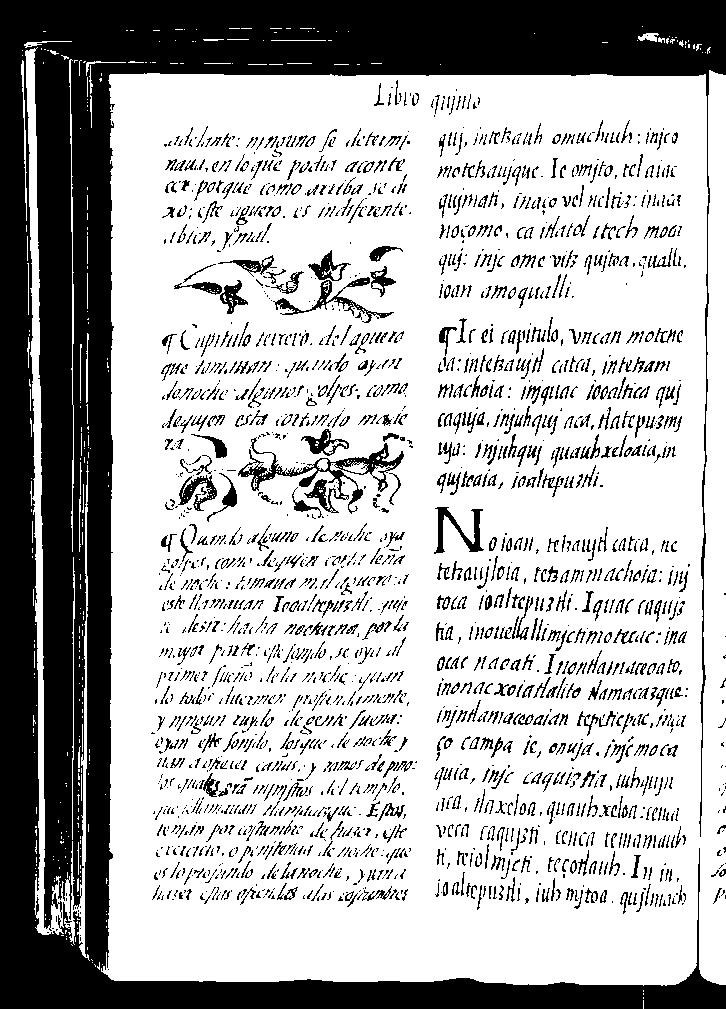 Libro qujnto
adelante: njnguno se determj-
naua, en lo que podia aconte
cer. porque como arriba se di
xo; este aguero. es indiferente.
abien, y mal.
¶ Capitulo tercero. del aguero
que tomauan: quando oyan
denoche algunos golpes, como,
dequjen esta cortando made
ra
¶ Quando alguno de noche oya
golpes, como dequjen corta leña
de noche: tomaua mal aguero: a
este llamauan Iooaltepuztli. quje
re dezir: hacha nocturna, por la
mayor parte: este sonjdo, se oya al
primer sueño de la noche: quan
do todos duermen profundamente,
y njngun ruydo de gente suena:
oyan este sonjdo, los que de noche y
uan a ofrecer cañas, y ramos de pino:
los quales erã mjnjstros del templo,
que se llamauan tlamacazque. Estos,
tenjan por costumbre de hazer, este
exercicio, o penjtencia de noche: que
es lo profundo de la noche, yuan a
hazer estas ofrendas a las costumbres
quj, intetzauh omuchiuh: injc o
motetzaujque. Ic omjto, tel aiac
qujmati, inaço vel neltiz: inaca
noçomo, ca itlatol itech moca
quj: injc ome vitz qujtoa, qualli,
ioan amo qualli.
¶ Ic ei capitulo, vncan motene
oa: intetzaujtl catca, intetzam
machoia: injquac iooaltica quj
caquja, injuhquj aca, tlatepuzmj
uja: injuhquj quauhxeloaia, in
qujtoaia, ioaltepuztli.
No ioan, tetzaujtl catca, ne
tetzaujloia, tetzammachoia: inj
toca ioaltepuztli. Iquac caqujz
tia, inouellallimjctimotecac: ina
ocac nacati. Inontlamaceoato,
inonacxoiatlalito tlamacazque:
injntlamaceoaian tepeticpac, ina
ço campa ie, onuja. injc moca
quia, injc caquiztia, iuhqujn
aca, tlaxeloa, quauhxeloa: cenca
veca caqujzti, cenca temamauh
ti, teiolmjcti, teçotlauh. In in,
ioaltepuztli, iuh mjtoa. qujlmach